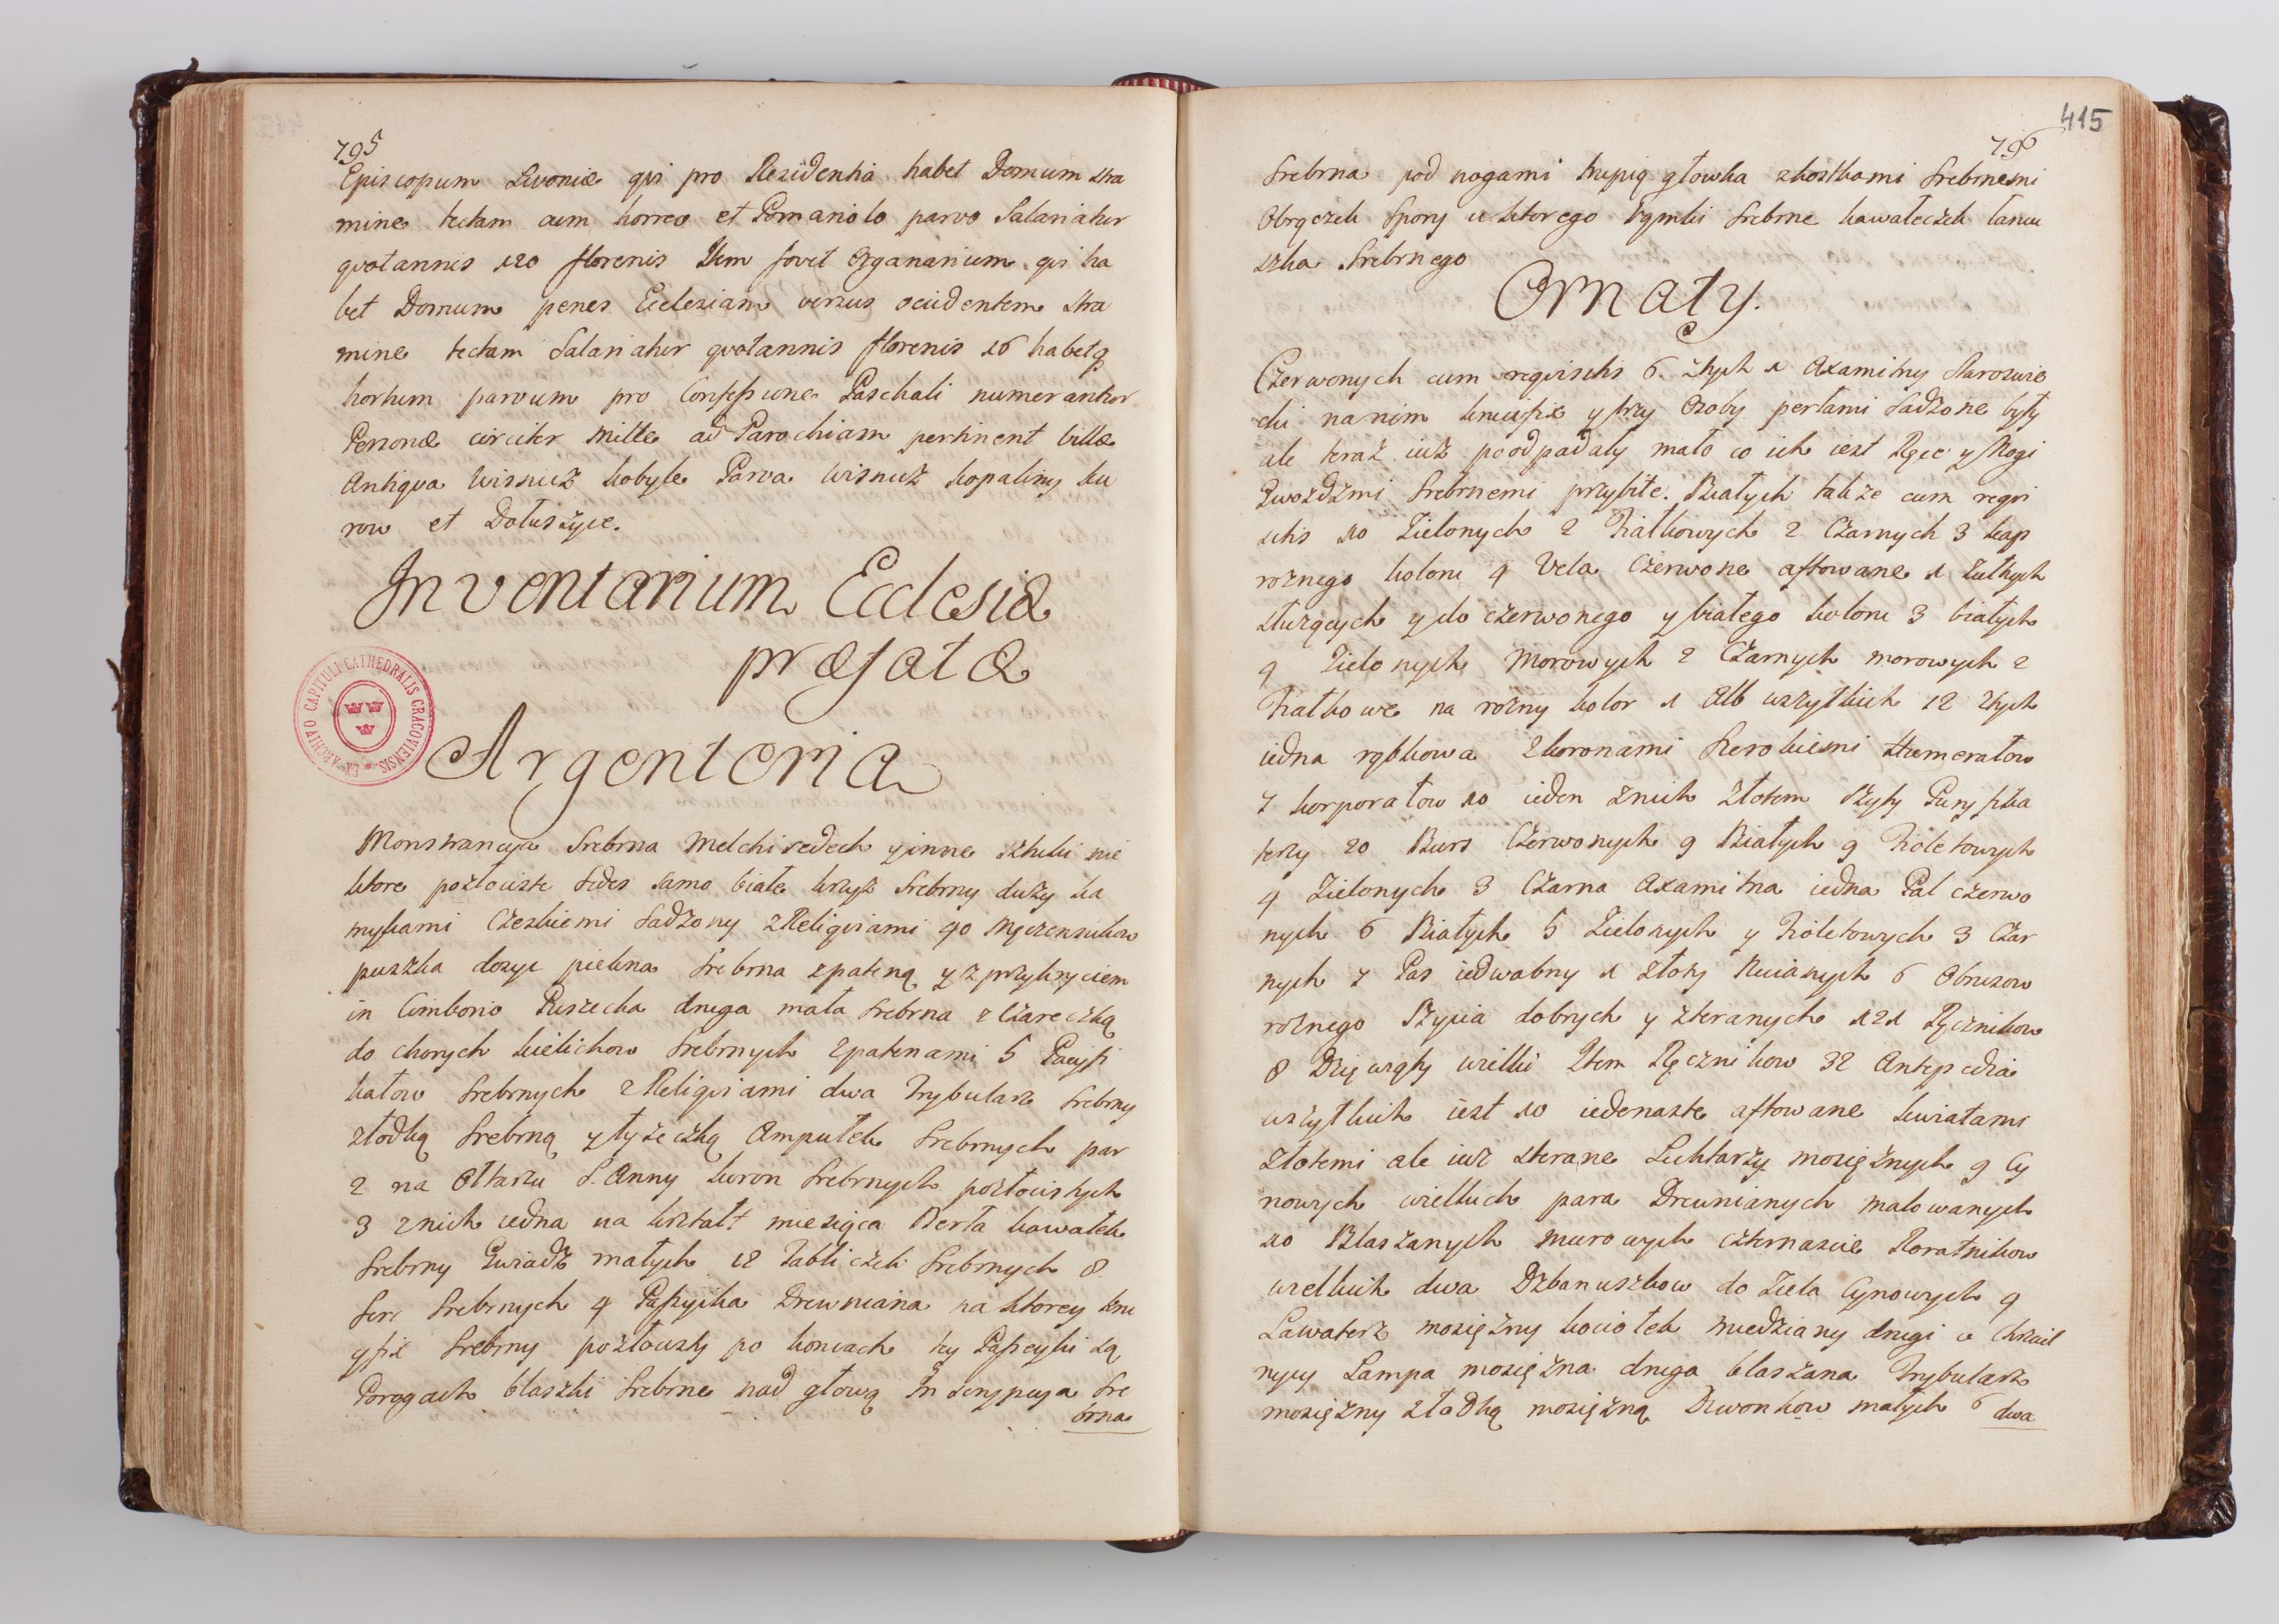 795
Episcopum Livoniæ qvi pro Residentia habet Domum stra
mine tectam cum horreo et Pomariolo parvo Salariatur
qvotannis 120 florenis Item fovit Organarium qvi ha
bet Domum penes Eccleziam versus occidentem stra
mine tectam Salariatur qvotannis florenis 16 habetq
hortum parvum pro Confessione Paschali numerantur
Personæ circiter Mille ad Parochiam pertinent villæ
Antiqva Wisnicz Kobyle Parva Wisnicz Kopaliny Ku
row et Dołuszyce.
Inventarium Ecclesiæ
præfatæ
Argenteria
EX ARCHIVO CAPITULI CATHEDRALIS CRACOVIENSIS
Monstrancya Srebrna Melchisedech y inne sztuki nie
ktore pozłociste Sedes samo białe krzyż Srebrny duży ka
mykami Czeskiemi Sadzony z Religviami 40 Męczennikow
puszka dosyc piekna Srebrna z pateną y z przykryciem
in Cimborio Puszecka druga mała Srebrna z Czareczką
do chorych kielichow Srebrnych z patenami 5 Pacyfi
kałow Srebrnych z Religviami dwa Trybularz Srebrny
z łodką Srebrną y łyżeczką Ampułek Srebrnych par
2 na Ołtarzu S. Anny koron Srebrnych pozłocistych
3 z nich iedna na kształt miesiąca Berła kawałek
Srebrny Gwiazd małych 12 Tabliczek Srebrnych 8
Serc Srebrnych 4 Passyika Drewniana na ktorey kru
cyfix Srebrny pozłocisty po koncach tey Passyiki są
Porogach blaszki Srebrne nad głową Inscrypcya Sre
brna
415
796
Srebrna pod nogami trupią głowka z kostkami Srebrnemi
Obrączek Spory u ktorego Pęmki Srebrne kawałeczek łancu
szka Srebrnego
Ornaty.
Czerwonych cum reqvisitis 6 z tych 1 Axamitny Staroswie
cki na nim krucifix y trzy Osoby perłami Sadzone były
ale teraz iuż poodpadały mało co ich iest Ręce y Nogi
Gwoźdźmi Srebrnemi przybite. Białych także cum reqvi
sitis 10 Zielonych 2 Fiałkowych 2 Czarnych 3 kap
roznego koloru 4 Vela Czerwone aftowane 1 żułtych
służących y do czerwonego y białego koloru 3 białych
4 Zielonych Morowych 2 Czarnych morowych 2
Fiałkowe na rożny kolor 1 Alb wszytkich 12 z tych
iedna rąbkowa z koronami Szerokiemi Humerałow
7 korporałow 10 ieden z nich złotem szyty Puryfika
terzy 20 Burs Czerwonych 9 Białych 9 Fioletowych
4 Zielonych 3 Czarna Axamitna iedna Pal czerwo
nych 6 Białych 5 Zielonych y Fioletowych 3 Czar
nych 7 Pas iedwabny 1 złoty Nicianych 6 Obrusow
roznego Szycia dobrych y zteranych 121 Ręcznikow
8 Dzięwąty wielki Item Ręcznikow 32 Antepedia
wszytkich iest 10 iedenaste aftowane kwiatami
złotemi ale iuz sterane Lichtarzy mosiężnych 9 Cy
nowych wielkich para Drewnianych malowanych
10 Blaszanych murowych czternascie Roratnikow
wielkich dwa Dzbanuszkow do Ziela Cynowych 9
Lawaterz mosiężny kociołek miedziany drugi u Chrzcil
nycy Lampa mosiężna druga blaszana Trybularz
mosiężny z łodką mosiężną Dzwonkow małych 6 dwa